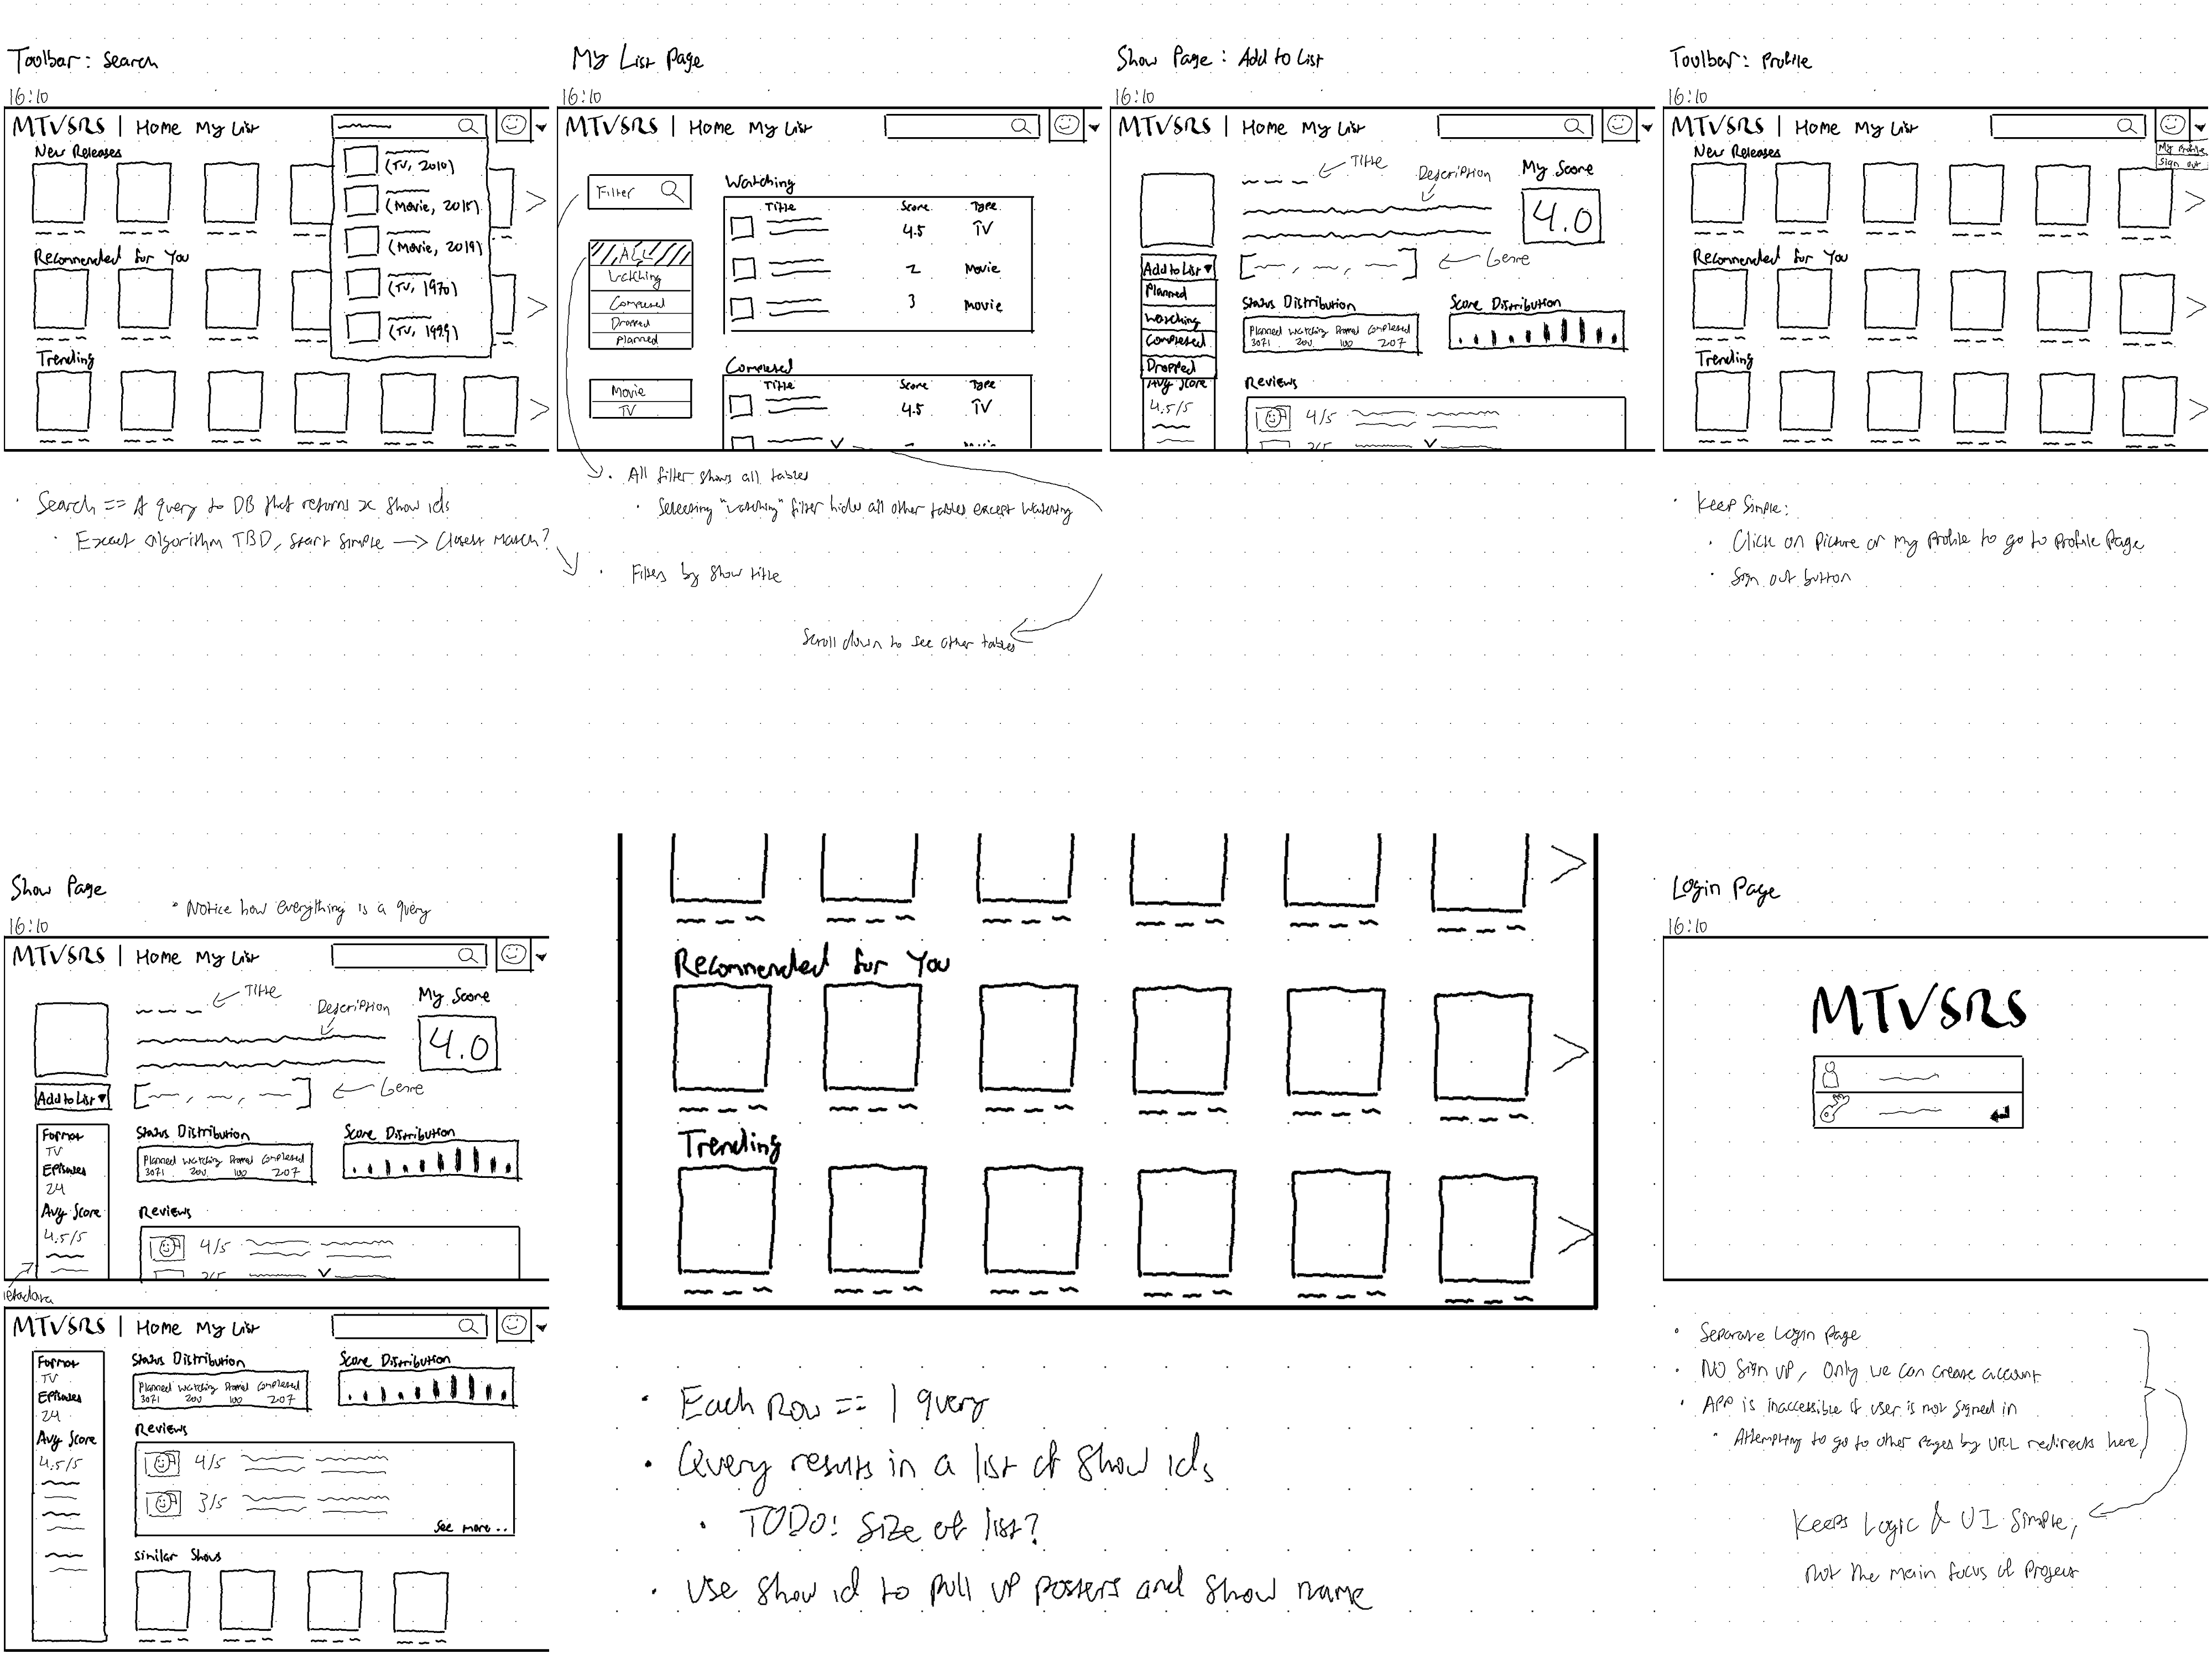 Toolbar: Search
16:10
MTVSRS | Home My List
New Releases
(TV, 2010)
(Movie, 2015)
(Movie, 2019)
(TV, 1970)
(TV, 1999)
Recommended for You
Trending
• Search == A query to DB that returns x show ids
• Exact algorithm TBD, start simple → Closest Match?
My List Page
16:10
MTVSRS | Home My List
Filter
ALL
Watching
Completed
Dropped
Planned
Movie
TV
Watching
Title Score Type
4.5 TV
2 Movie
3 Movie
Completed
Title Score Type
4.5 TV
• All filter shows all tables
• Selecting "Watching" filter hides all other tables except Watching
• Filters by show title
Scroll down to see other tables
Show Page: Add to List
16:10
MTVSRS | Home My List
Title
Description
My Score
4.0
Genre
Add to List
Planned
Watching
Completed
Dropped
Avg Score
4.5/5
Status Distribution
Planned Watching Dropped Completed
3071 200 100 207
Score Distribution
Reviews
4/5
Toolbar: Profile
16:10
MTVSRS | Home My List
My Profile
Sign out
New Releases
Recommended for You
Trending
• Keep Simple:
• Click on Picture or my profile to go to profile page
• Sign out button
Show Page
• Notice how everything is a query
16:10
MTVSRS | Home My List
Title
Description
My Score
4.0
Add to List
Genre
Format
TV
Episodes
24
Avg Score
4.5/5
Status Distribution
Planned Watching Dropped Completed
3071 200 100 207
Score Distribution
Reviews
4/5
MTVSRS | Home My List
Format
TV
Episodes
24
Avg Score
4.5/5
Status Distribution
Planned Watching Dropped Completed
3071 200 100 207
Score Distribution
Reviews
4/5
3/5
See more..
Similar Shows
Recommended for You
Trending
• Each Row == 1 query
• Query results in a list of show ids
• TODO: Size of list?
• Use show id to pull up posters and show name
Login Page
16:10
MTVSRS
• Separate Login Page
• NO Sign up, Only we can create account
• APP is inaccessible if user is not signed in
• Attempting to go to other pages by URL redirects here
Keeps Logic & UI Simple,
not the main focus of project